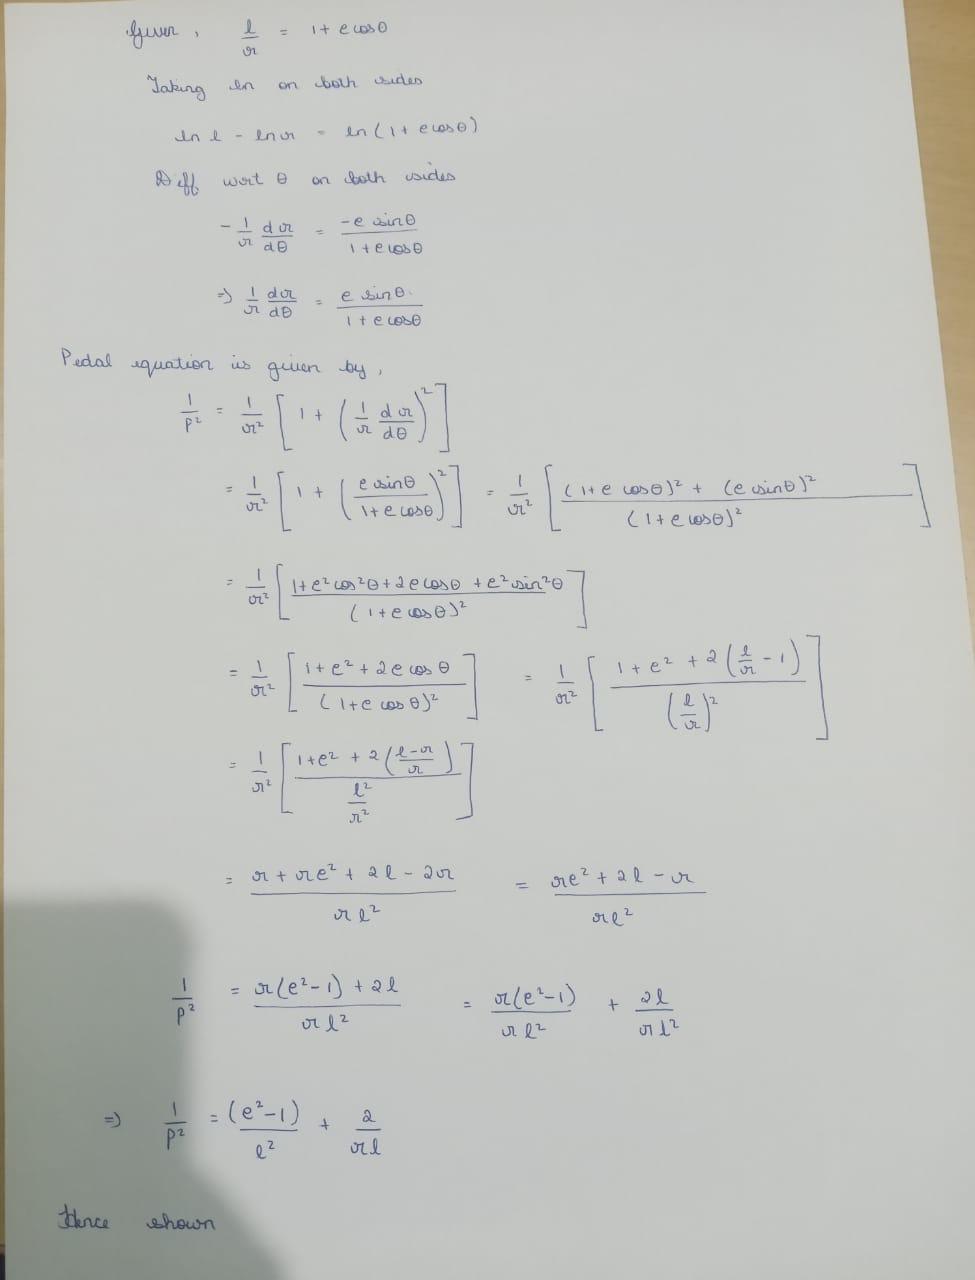 Given, l/r = 1 + e cosθ
Taking ln on both sides
ln l - ln r = ln (1 + e cosθ)
Diff wrt θ on both sides
- 1/r dr/dθ = -e sinθ / 1 + e cosθ
⇒ 1/r dr/dθ = e sinθ / 1 + e cosθ
Pedal equation is given by,
1/p² = 1/r² [ 1 + ( 1/r dr/dθ )² ]
= 1/r² [ 1 + ( e sinθ / 1 + e cosθ )² ] = 1/r² [ (1 + e cosθ)² + (e sinθ)² / (1 + e cosθ)² ]
= 1/r² [ 1 + e² cos²θ + 2 e cosθ + e² sin²θ / (1 + e cosθ)² ]
= 1/r² [ 1 + e² + 2 e cos θ / (1 + e cos θ)² ] = 1/r² [ 1 + e² + 2 ( l/r - 1 ) / ( l/r )² ]
= 1/r² [ 1 + e² + 2 ( l - r / r ) / l²/r² ]
= r + re² + 2l - 2r / r l² = re² + 2l - r / r l²
1/p² = r(e² - 1) + 2l / r l² = r(e² - 1) / r l² + 2l / r l²
⇒ 1/p² = (e² - 1) / l² + 2 / r l
Hence shown